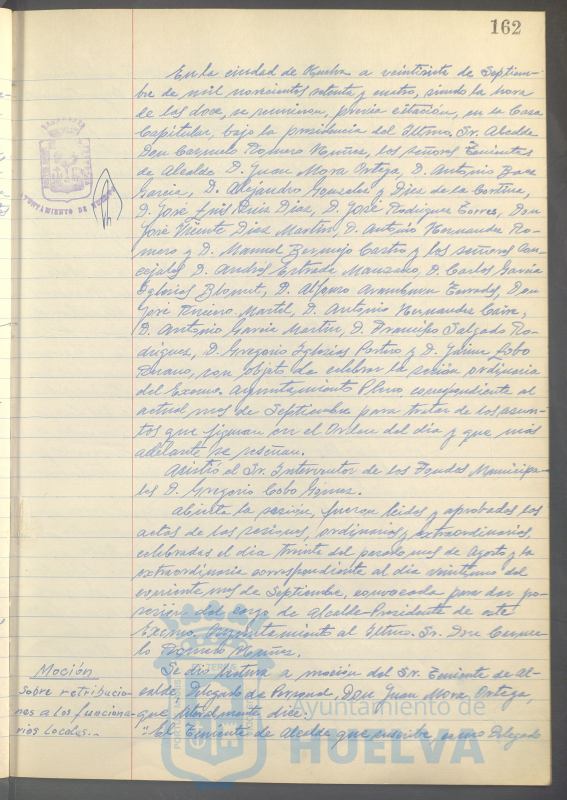 162
En la ciudad de Huelva a veintisiete de Septiem-
bre de mil novecientos setenta y cuatro, siendo la hora
de las doce, se reunieron, previa citación, en la Casa
Capitular, bajo la presidencia del Iltmo. Sr. Alcalde
Don Carmelo Romero Núñez, los señores Tenientes
de Alcalde D. Juan Mora Ortega, D. Antonio Baez
Garcia, D. Alejandro Gonzalez y Diez de la Cortina,
D. José Luis Ruiz Diaz, D. José Rodriguez Torres, Don
José Vicente Diaz Martin, D. Antonio Hernandez Ro-
mero y D. Manuel Bermejo Castro y los señores Con-
cejales D. Andrés Estrada Manzano, D. Carlos Garcia
Iglesias D. Alfonso Aramburu Terrades, Don
José Martel, D. Antonio Hernandez
D. Antonio Garcia Martin, D. Francisco Salgado Ro-
driguez, D. Gregorio Iglesias y D. Jaime Lobo
con objeto de celebrar la sesión ordinaria
del Excmo. Ayuntamiento Pleno correspondiente al
actual mes de Septiembre para tratar de los asun-
tos que figuran en el Orden del dia y que más
adelante se reseñan.
Asistió el Sr. Interventor de los Fondos Municipa-
les D. Gregorio Cobo Gómez.
Abierta la sesión, fueron leidas y aprobadas las
actas de las sesiones, ordinaria y extraordinarias,
celebradas el dia treinta del pasado mes de Agosto y la
extraordinaria correspondiente al dia veintiuno del
corriente mes de Septiembre, convocada para dar po-
sesión del cargo de Alcalde-Presidente de este
Excmo. Ayuntamiento al Iltmo. Sr. Don Carme-
lo Romero Núñez.
Se dió lectura a moción del Sr. Teniente de Al-
calde, Delegado de Personal, Don Juan Mora Ortega,
que literalmente dice:
"El Teniente de Alcalde que suscribe, como Delegado
Moción
sobre retribucio-
nes a los funciona-
rios Locales.-
AYUNTAMIENTO DE HUELVA
Ayuntamiento de
HUELVA